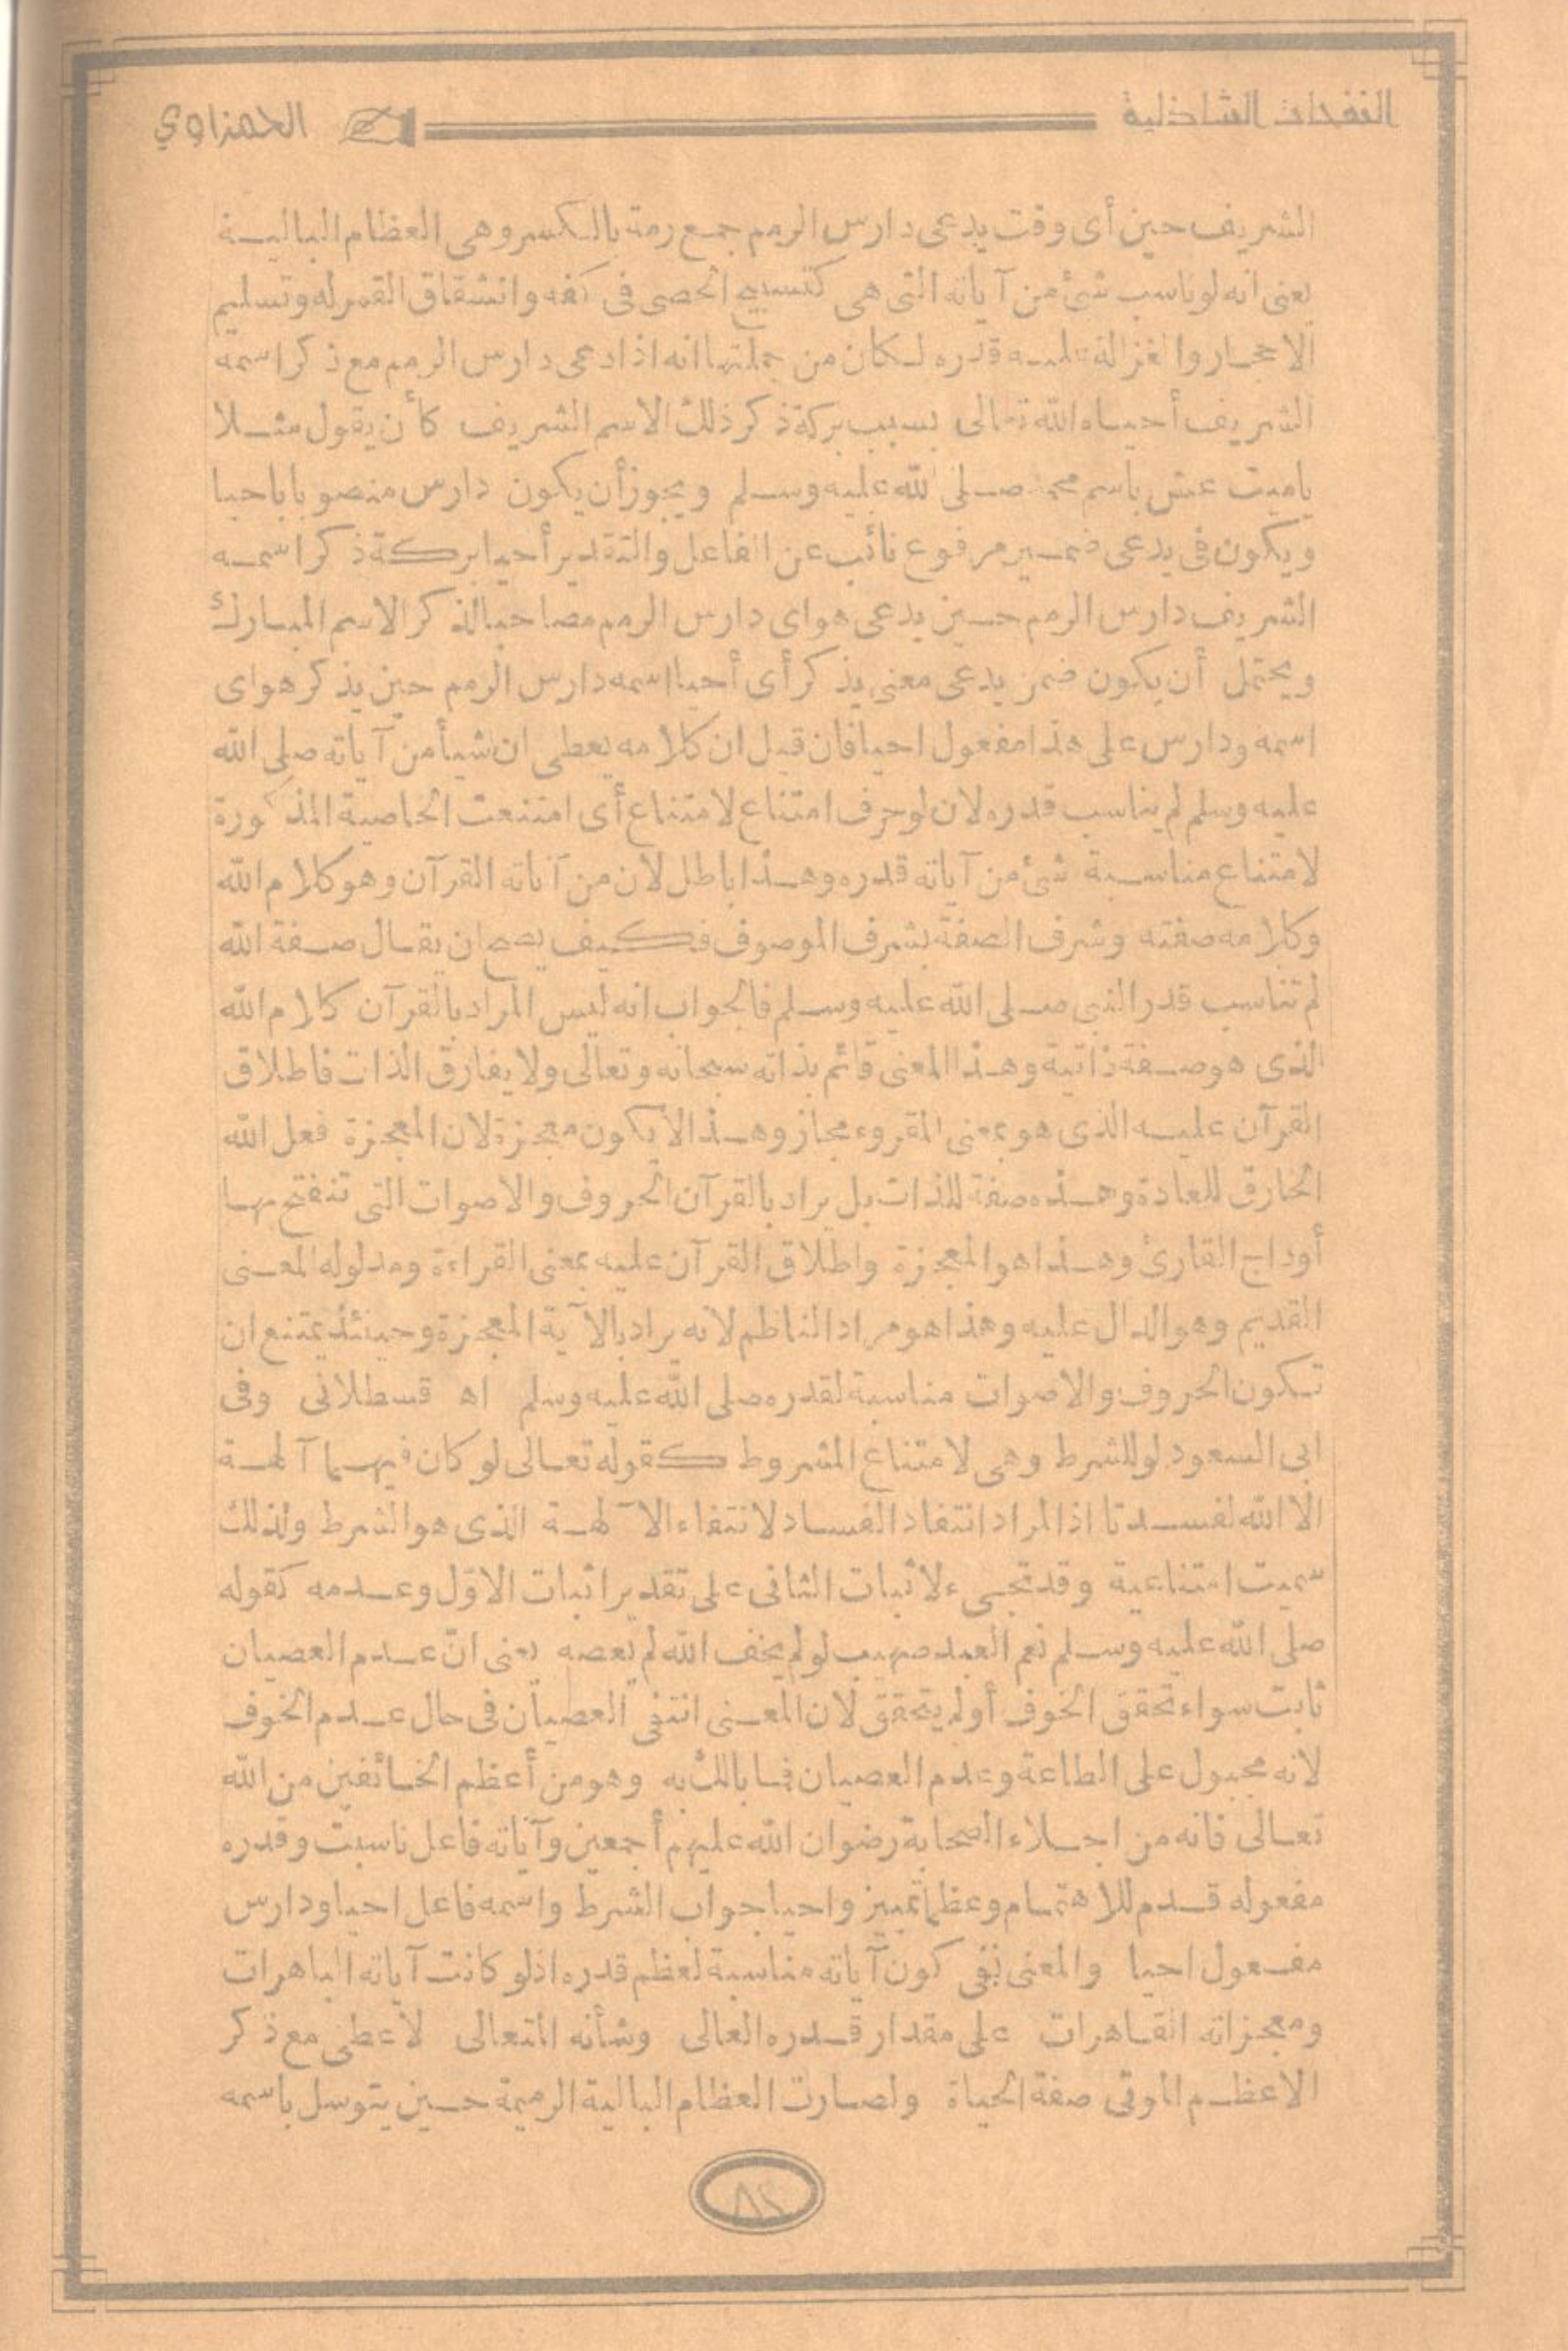 النفحات الشاذلية
الحمزاوي
الشريف حين أى وقت يدعى دارس الرمم جمع رمة بالكسر وهى العظام البالية
يعنى انه لو ناسب شئ من آياته التى هى كتسبيح الحصى فى كفه وانشقاق القمر له وتسليم
الاحجار والغزالة عليه قدره لكان من جملتها انه اذا دعى دارس الرمم مع ذكر اسمه
الشريف أحياه الله تعالى بسبب بركة ذكر ذلك الاسم الشريف كأن يقول مثلا
ياميت عش باسم محمد صلى الله عليه وسلم ويجوز أن يكون دارس منصوبا باحيا
ويكون فى يدعى ضمير مرفوع نائب عن الفاعل والتقدير أحيا بركة ذكر اسمه
الشريف دارس الرمم حين يدعى هو اى دارس الرمم مصاحبا لذكر الاسم المبارك
ويحتمل أن يكون ضمن يدعى معنى يذكر أى أحيا اسمه دارس الرمم حين يذكر هو اى
اسمه ودارس على هذا مفعول احيا فان قيل ان كلامه يعطى ان شيأ من آياته صلى الله
عليه وسلم لم يناسب قدره لان لو حرف امتناع لامتناع أى امتنعت الخاصية المذكورة
لامتناع مناسبة شئ من آياته قدره وهذا باطل لان من آياته القرآن وهو كلام الله
وكلامه صفته وشرف الصفة بشرف الموصوف فكيف يصح ان يقال صفة الله
لم تناسب قدر النبى صلى الله عليه وسلم فالجواب انه ليس المراد بالقرآن كلام الله
الذى هو صفة ذاتية وهذا المعنى قائم بذاته سبحانه وتعالى ولا يفارق الذات فاطلاق
القرآن عليه الذى هو بمعنى المقروء مجاز وهذا لا يكون معجزة لان المعجزة فعل الله
الخارق للعادة وهذه صفة للذات بل يراد بالقرآن الحروف والاصوات التى تنفتح بها
أوداج القارئ وهذا هو المعجزة واطلاق القرآن عليه بمعنى القراءة ومدلوله المعنى
القديم وهو الدال عليه وهذا هو مراد الناظم لانه يراد بالآية المعجزة وحينئذ يمتنع ان
تكون الحروف والاصوات مناسبة لقدره صلى الله عليه وسلم اه قسطلانى وفى
ابى السعود لو للشرط وهى لامتناع المشروط كقوله تعالى لو كان فيهما آلهة
الا الله لفسدتا اذ المراد انتفاء الفساد لانتفاء الآلهة الذى هو الشرط ولذلك
سميت امتناعية وقد تجىء لاثبات الثانى على تقدير اثبات الاوّل وعدمه كقوله
صلى الله عليه وسلم نعم العبد صهيب لو لم يخف الله لم يعصه يعنى انّ عدم العصيان
ثابت سواء تحقق الخوف أو لم يتحقق لان المعنى انتفى العصيان فى حال عدم الخوف
لانه مجبول على الطاعة وعدم العصيان فما بالك به وهو من أعظم الخائفين من الله
تعالى فانه من اجلاء الصحابة رضوان الله عليهم أجمعين وآياته فاعل ناسبت وقدره
مفعوله قدم للاهتمام وعظما تمييز واحيا جواب الشرط واسمه فاعل احيا ودارس
مفعول احيا والمعنى نفى كون آياته مناسبة لعظم قدره اذ لو كانت آياته الباهرات
ومعجزاته القاهرات على مقدار قدره العالى وشأنه المتعالى لأعطى مع ذكر
الاعظم صفة الحياة ولصارت العظام البالية الرميمة حين يتوسل باسمه
٨٢